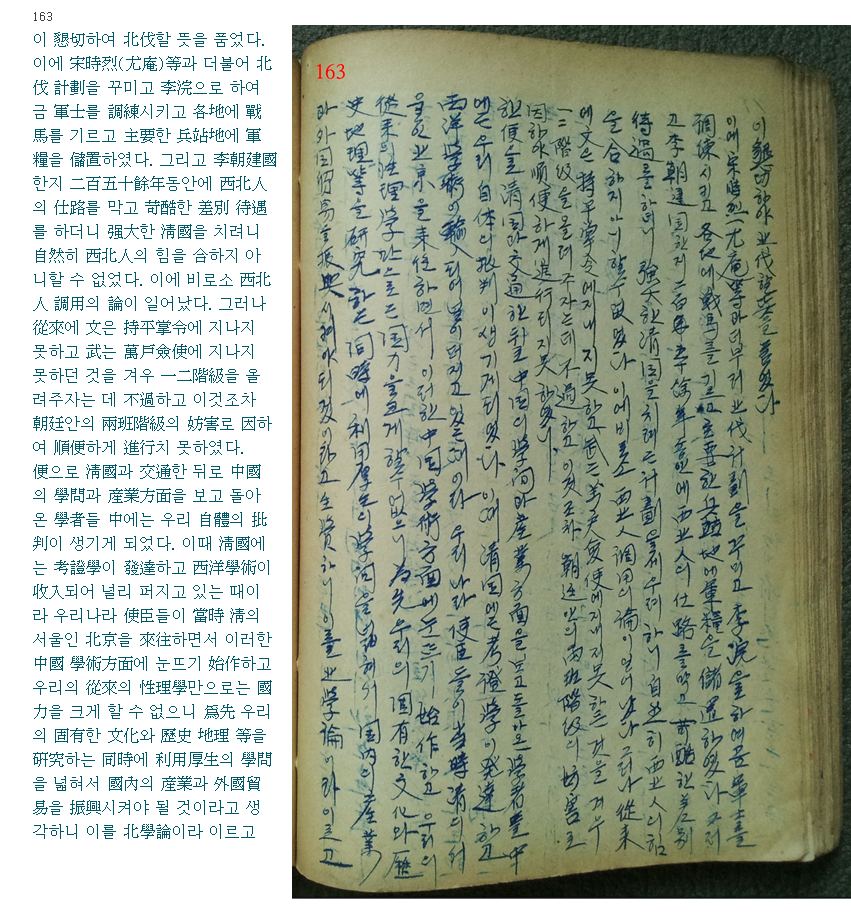 163
이 懇切하여 北伐할 뜻을 품었다.
이에 宋時烈(尤庵)等과 더불어 北
伐 計劃을 꾸미고 李浣으로 하여
금 軍士를 調練시키고 各地에 戰
馬를 기르고 主要한 兵站地에 軍
糧을 儲置하였다. 그리고 李朝建國
한지 二百五十餘年동안에 西北人
의 仕路를 막고 苛酷한 差別 待遇
를 하더니 强大한 淸國을 치려니
自然히 西北人의 힘을 合하지 아
니할 수 없었다. 이에 비로소 西北
人 調用의 論이 일어났다. 그러나
從來에 文은 持平掌令에 지나지
못하고 武는 萬戶僉使에 지나지
못하던 것을 겨우 一二階級을 올
려주자는 데 不過하고 이것조차
朝廷안의 兩班階級의 妨害로 因하
여 順便하게 進行치 못하였다.
便으로 淸國과 交通한 뒤로 中國
의 學問과 産業方面을 보고 돌아
온 學者들 中에는 우리 自體의 批
判이 생기게 되었다. 이때 淸國에
는 考證學이 發達하고 西洋學術이
收入되어 널리 퍼지고 있는 때이
라 우리나라 使臣들이 當時 淸의
서울인 北京을 來往하면서 이러한
中國 學術方面에 눈뜨기 始作하고
우리의 從來의 性理學만으로는 國
力을 크게 할 수 없으니 爲先 우리
의 固有한 文化와 歷史 地理 等을
硏究하는 同時에 利用厚生의 學問
을 넓혀서 國內의 産業과 外國貿
易을 振興시켜야 될 것이라고 생
각하니 이를 北學論이라 이르고
163
이 懇切하야 北伐할 뜻을 품었다
이에 宋時烈(尤庵)等과 더부러 北伐計劃을 꾸미고 李浣을 하여곰 軍士를
調練시키고 各地에 戰馬를 기르고 主要한 兵站地에 軍糧을 儲置하였다 그리
고 李朝建國한지 二百五十餘年동안에 西北人의 仕路를 막고 苛酷한 差別
待遇를 하더니 强大한 淸國을 치려는 計劃을 세우려 하니 自然히 西北人의 힘
을 合하지 아니할 수 없었다 이에 비로소 西北人 調用의 論이 일어났다 그러나 從來
에 文은 持平掌令에 지내지 못하고 武는 萬戶僉使에 지내지 못하든 것을 겨우
一二階級을 올려주자는데 不過하고 이것조차 朝廷안의 兩班階級의 妨害로
因하야 順便하게 進行되지 못하였다.
한便으로 淸國과 交通한 뒤로 中國의 學問과 産業方面을 보고 돌아온 學者들 中
에는 우리 自体의 批判이 생기게 되였다 이때 淸国에는 考證學이 発達하고
西洋学術이 輸入되어 널이 퍼지고 있는 때이라 우리나라 使臣들이 当時 淸의 서
울인 北京을 来往하면서 이러한 中国学術方面에 눈뜨기 始作하고 우리의
從来의 性理学만으로는 国力을 크게 할 수 없으니 爲先 우리의 固有한 文化와 歷
史地理等을 硏究하는 同時에 利用厚生의 学問을 넓혀서 国内의 産業
과 外国貿易을 振興시켜야 되겠이라고 생각하니 이를 北学論이라 이르고